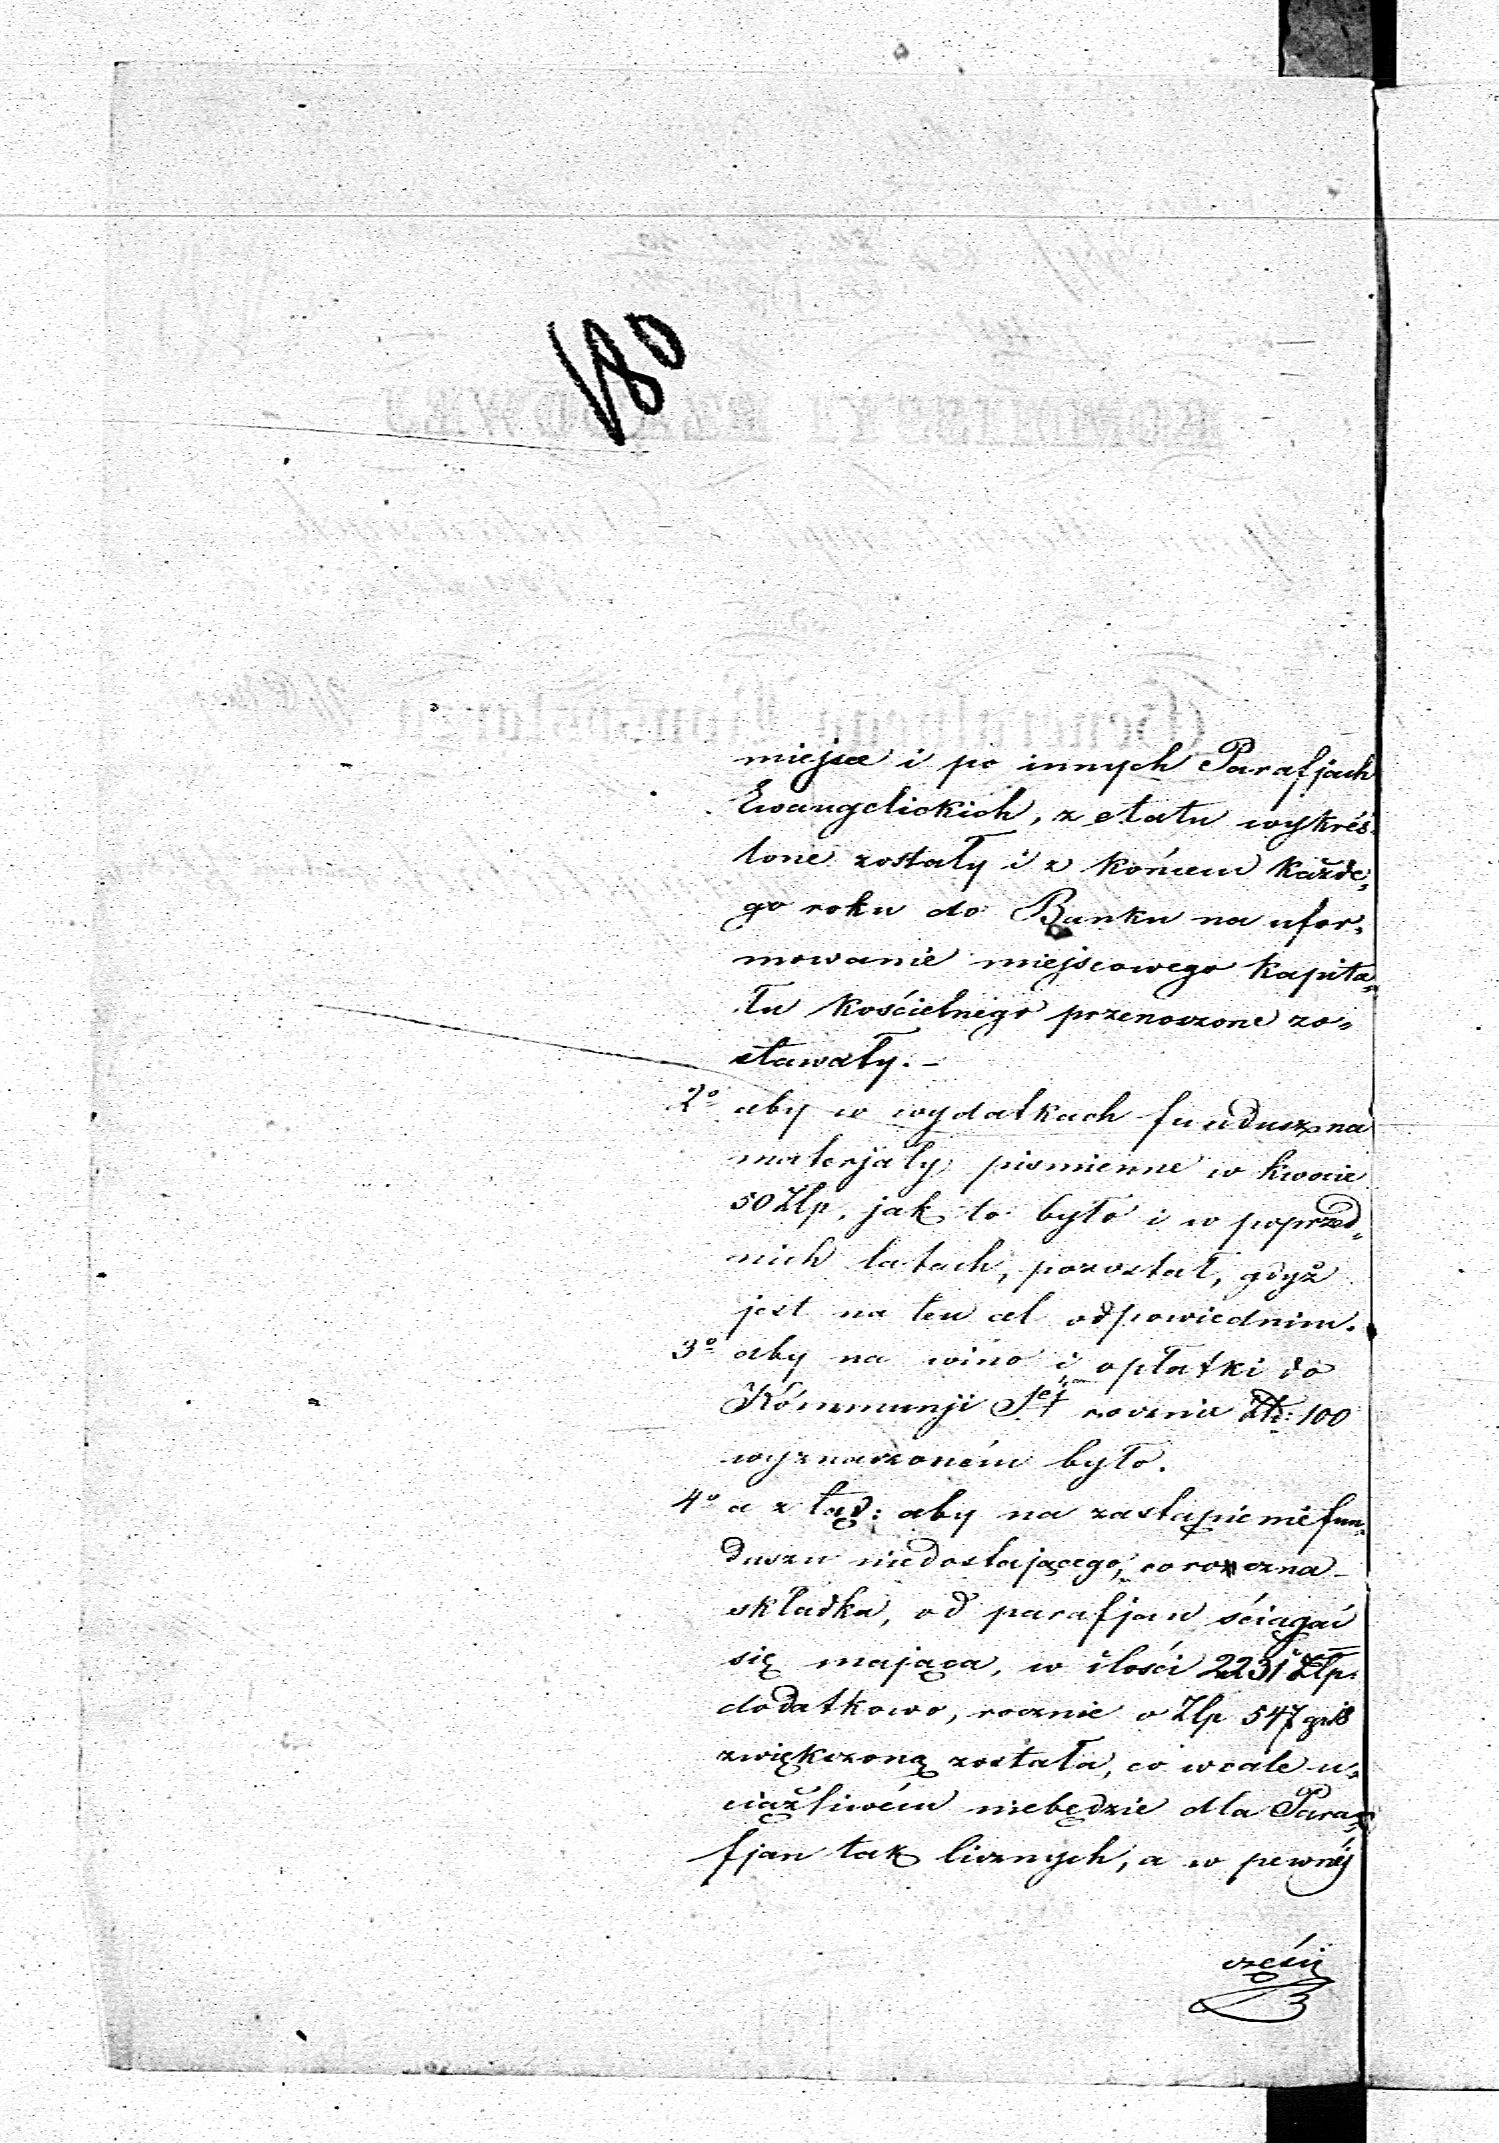 180
miejsce i po innych Parafjach
Ewangelickich, z etatu wykreś-
lone zostały i z końcem każde-
go roku do Banku na ufor-
mowanie miejscowego kapita-
łu kościelnego przenoszone zo-
stawały. -
2º aby w wydatkach fundusz na
materjały pismienne w kwocie
50 Złp, jak to było i w poprzed-
nich latach, pozostał, gdyż
jest na ten cel odpowiednim.
3º aby na wino i opłatki do
Kommunji Stej rocznie Złt: 100
wyznaczoném było.
4º a ztąd: aby na zastąpienie fun-
duszu niedostającego, coroczna
składka, od parafjan ściągać
się mająca, w ilości 2231 Złp.
dodatkowo, rocznie o Złp 547 gr 18
zwiększoną została, co wcale u-
ciążliwém niebędzie dla Para-
fjan tak licznych, a w pewnéj
części